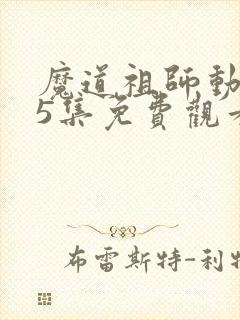 魔道祖師動
5集免費觀
布雷斯特-利